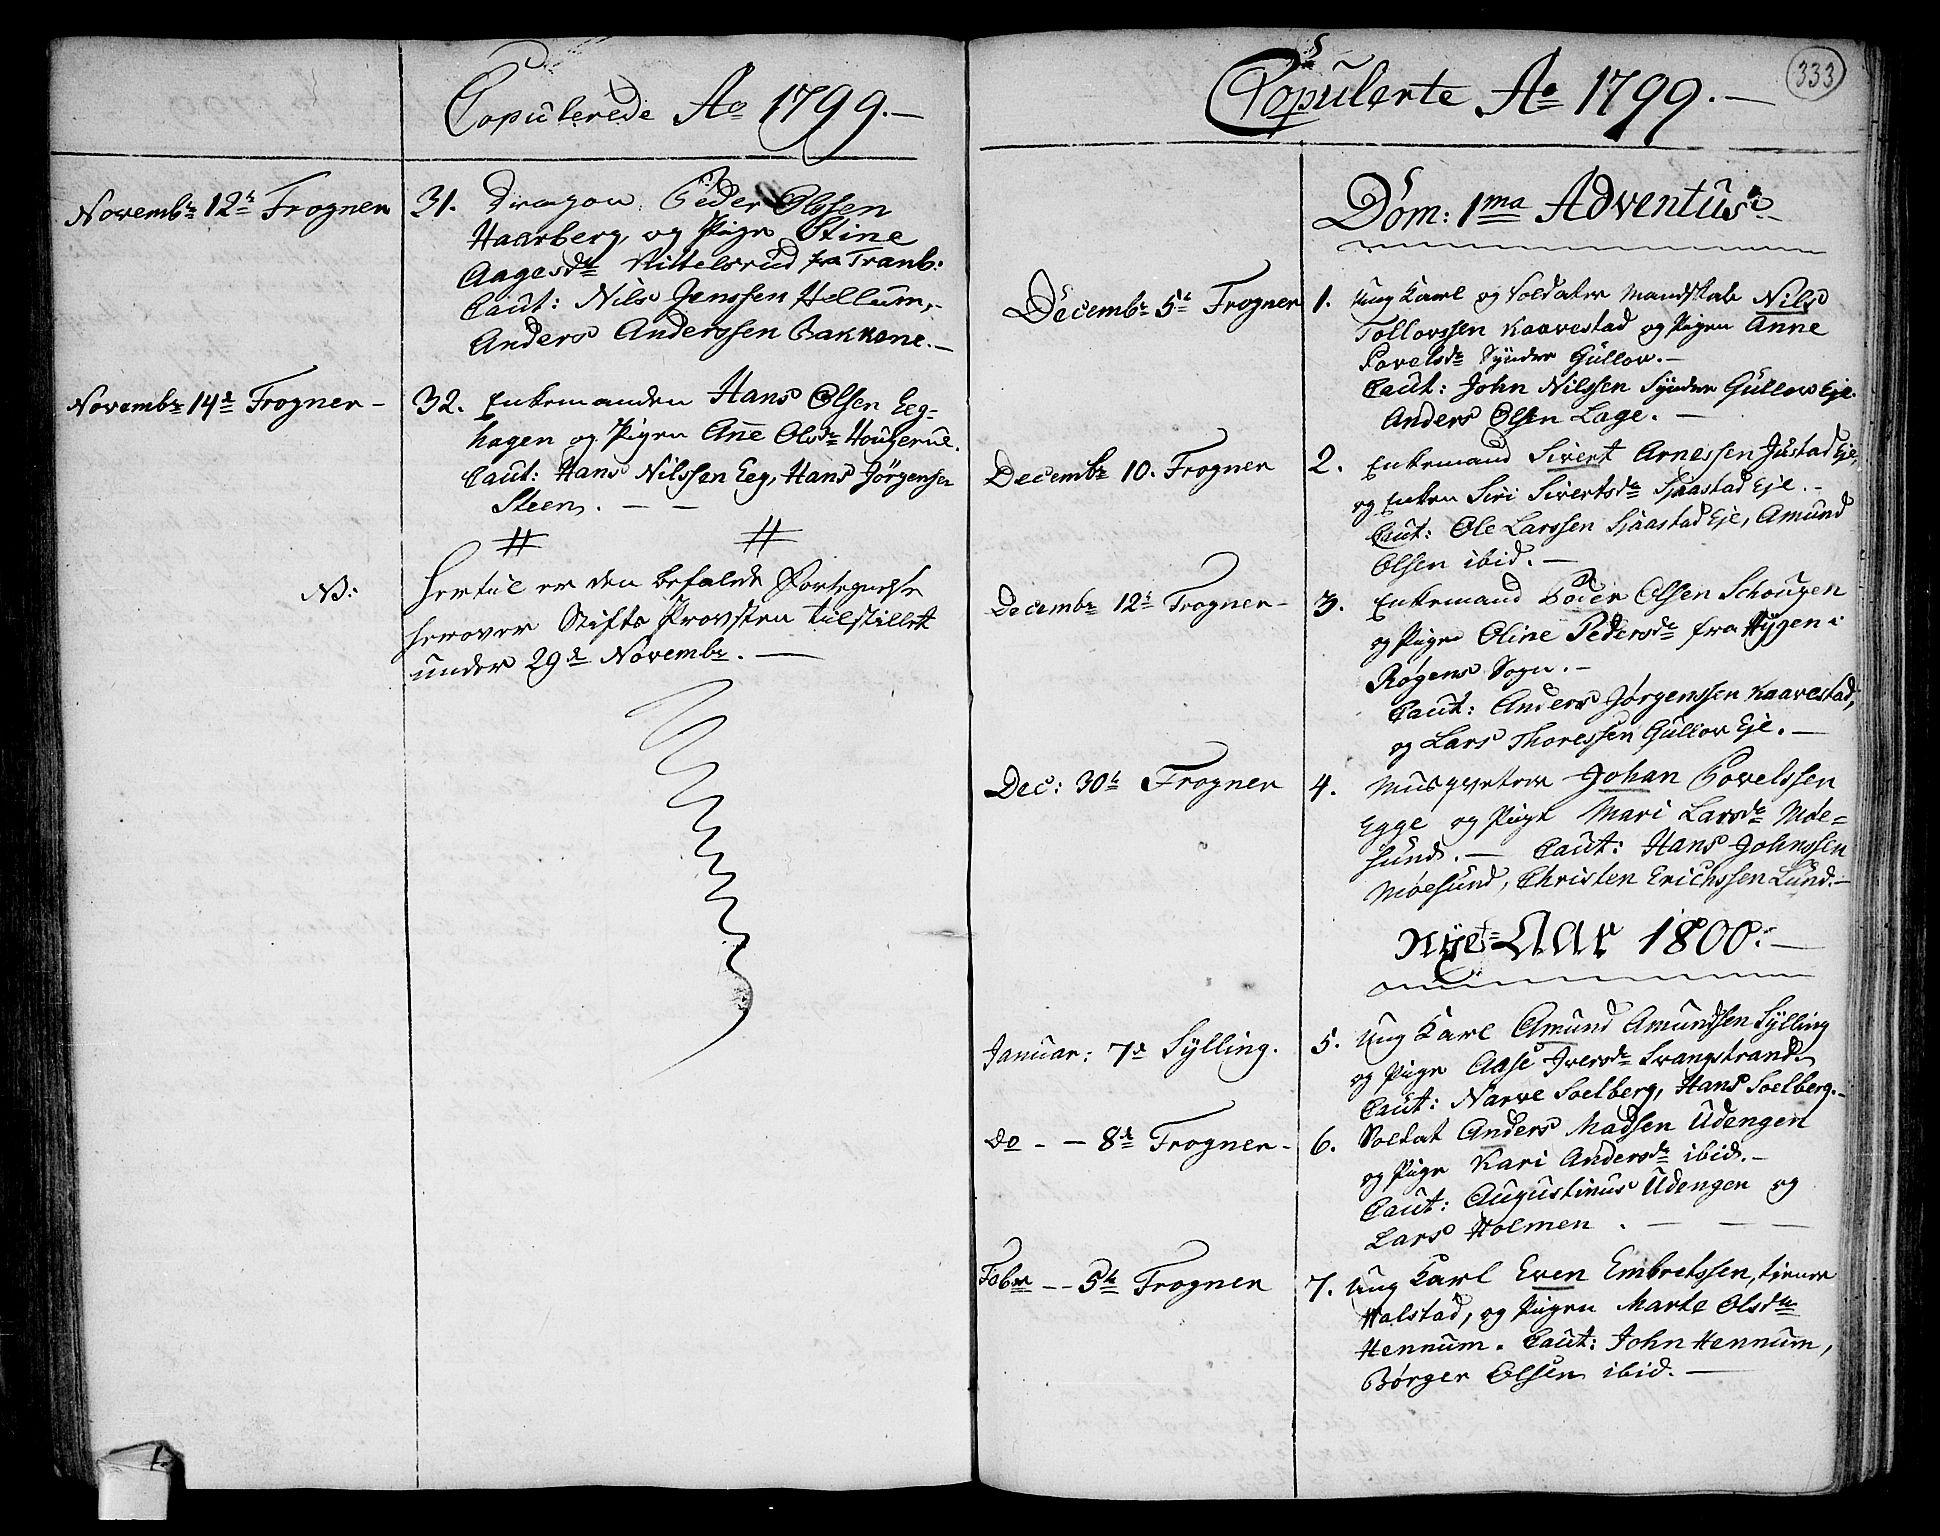 Copulerede Ao 1799.—
Novembr 12te Frogner 31. Dragon Peder Olssen
Haarberg, og Pige Stine
Aagesdr Kittelsrud fra Tranb:
Caut: Nils Jenssen Hellum,
Anders Anderssen Bakkene.—
Novembr 14de Frogner — 32. Enkemanden Hans Olsen Eeg-
hagen og Pigen Ane Olsdr Hougerue.
Caut: Hans Nilssen Eeg, Hans Jörgensen
Steen. — —
# #
NB: Hertil er den befalede Fortegnelse
herover Stifts Provsten tilstillet
under 29de Novembr. —
333
Copulerte Ao 1799.—
Dom: 1ma Adventus.
Decembr 5te Frogner 1. Ung Karl og Soldater Mandskab Nils
Tollovssen Kaavestad og Pigen Anne
Povelsdr Syndre Gullov.—
Caut: John Nilssen Syndre Gullov Eje.
Anders Olsen Lage. —
Decembr 10. Frogner 2. Enkemand Sivert Arnessen Justad Eje,
og Enken Siri Sivertsdr Sjaastad Eje.—
Caut: Ole Larssen Sjaastad Eje, Amund
Olsen ibid.—
Decembr 12te Frogner — 3. Enkemand Peder Olsen Schougen
og Pige Oline Pedersdr fra Hygen i
Røgens Sogn.—
Caut: Anders Jørgenssen Kaavestad,
og Lars Thoressen Gullov Eje.—
Dec: 30te Frogner 4. Musqveteer Johan Povelssen
Egge og Pige Mari Larsdr Møe-
sund.— Caut: Hans Johnssen
Møesund, Christen Erichssen Lund.—
Nyet-Aar 1800:—
Januar: 7de Sylling. 5. Ung Karl Amund Amundsen Sylling
og Pige Aase Iversdr Svangstrand
Caut: Narve Soelberg, Hans Soelberg.—
Do — — 8de Frogner — 6. Soldat Anders Madsen Udengen
og Pige Kari Andersdr ibid.—
Caut: Augustinus Udengen og
Lars Holmen. — — —
Febr — — 5te Frogner 7. Ung Karl Even Embretssen, tjener
Halstad, og Pigen Marte Olsdr
Hennum. Caut: John Hennum,
Børger Olsen ibid.—